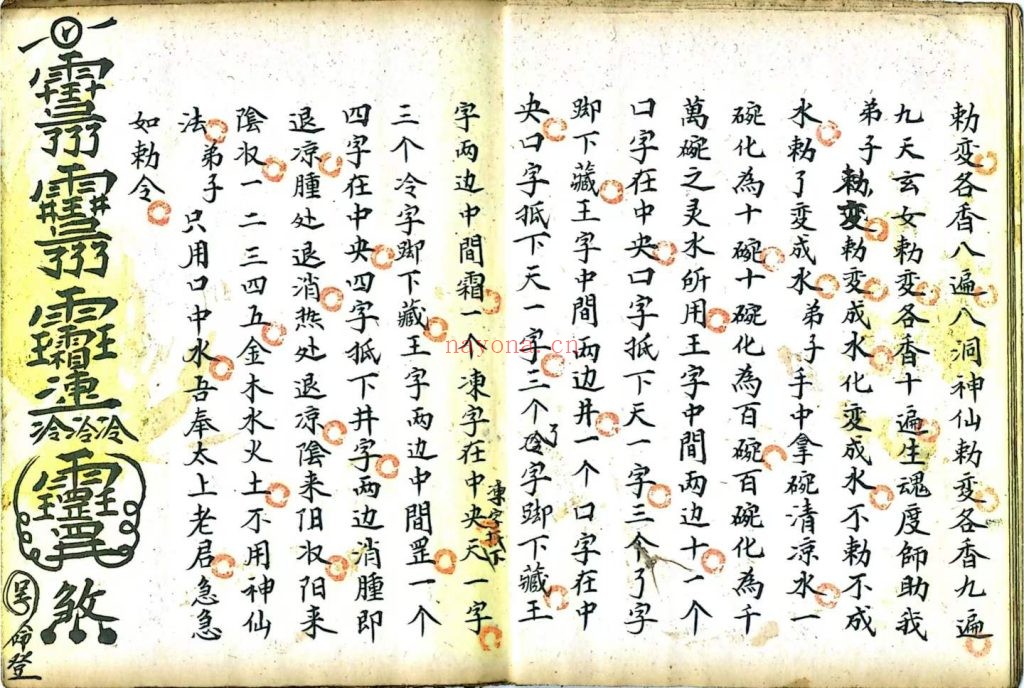 勅变各香八遍八洞神仙勅变各香九遍
九天玄女勅变各香十遍生魂度師助我
弟子勅变勅变成水化变成水不勅不成
水勅了变成水弟子手中拿碗清凉水一
碗化為十碗十碗化為百碗百碗化為千
萬碗之灵水所用王字中間两边十一个
口字在中央口字抵下天一字三个了字
脚下藏王字中間两边井一个口字在中
央口字抵下天一字三个了字脚下藏王
字两边中間霜一个凍字在中央天一字
凍字抵下
三个冷字脚下藏王字两边中間罡一个
四字在中央四字抵下井字两边消腫即
退凉腫处退消热处退凉陰来阳收阳来
陰收一二三四五金木水火土不用神仙
法弟子只用口中水吾奉太上老君急急
如勅令
冷冷冷
煞
nayona.cn